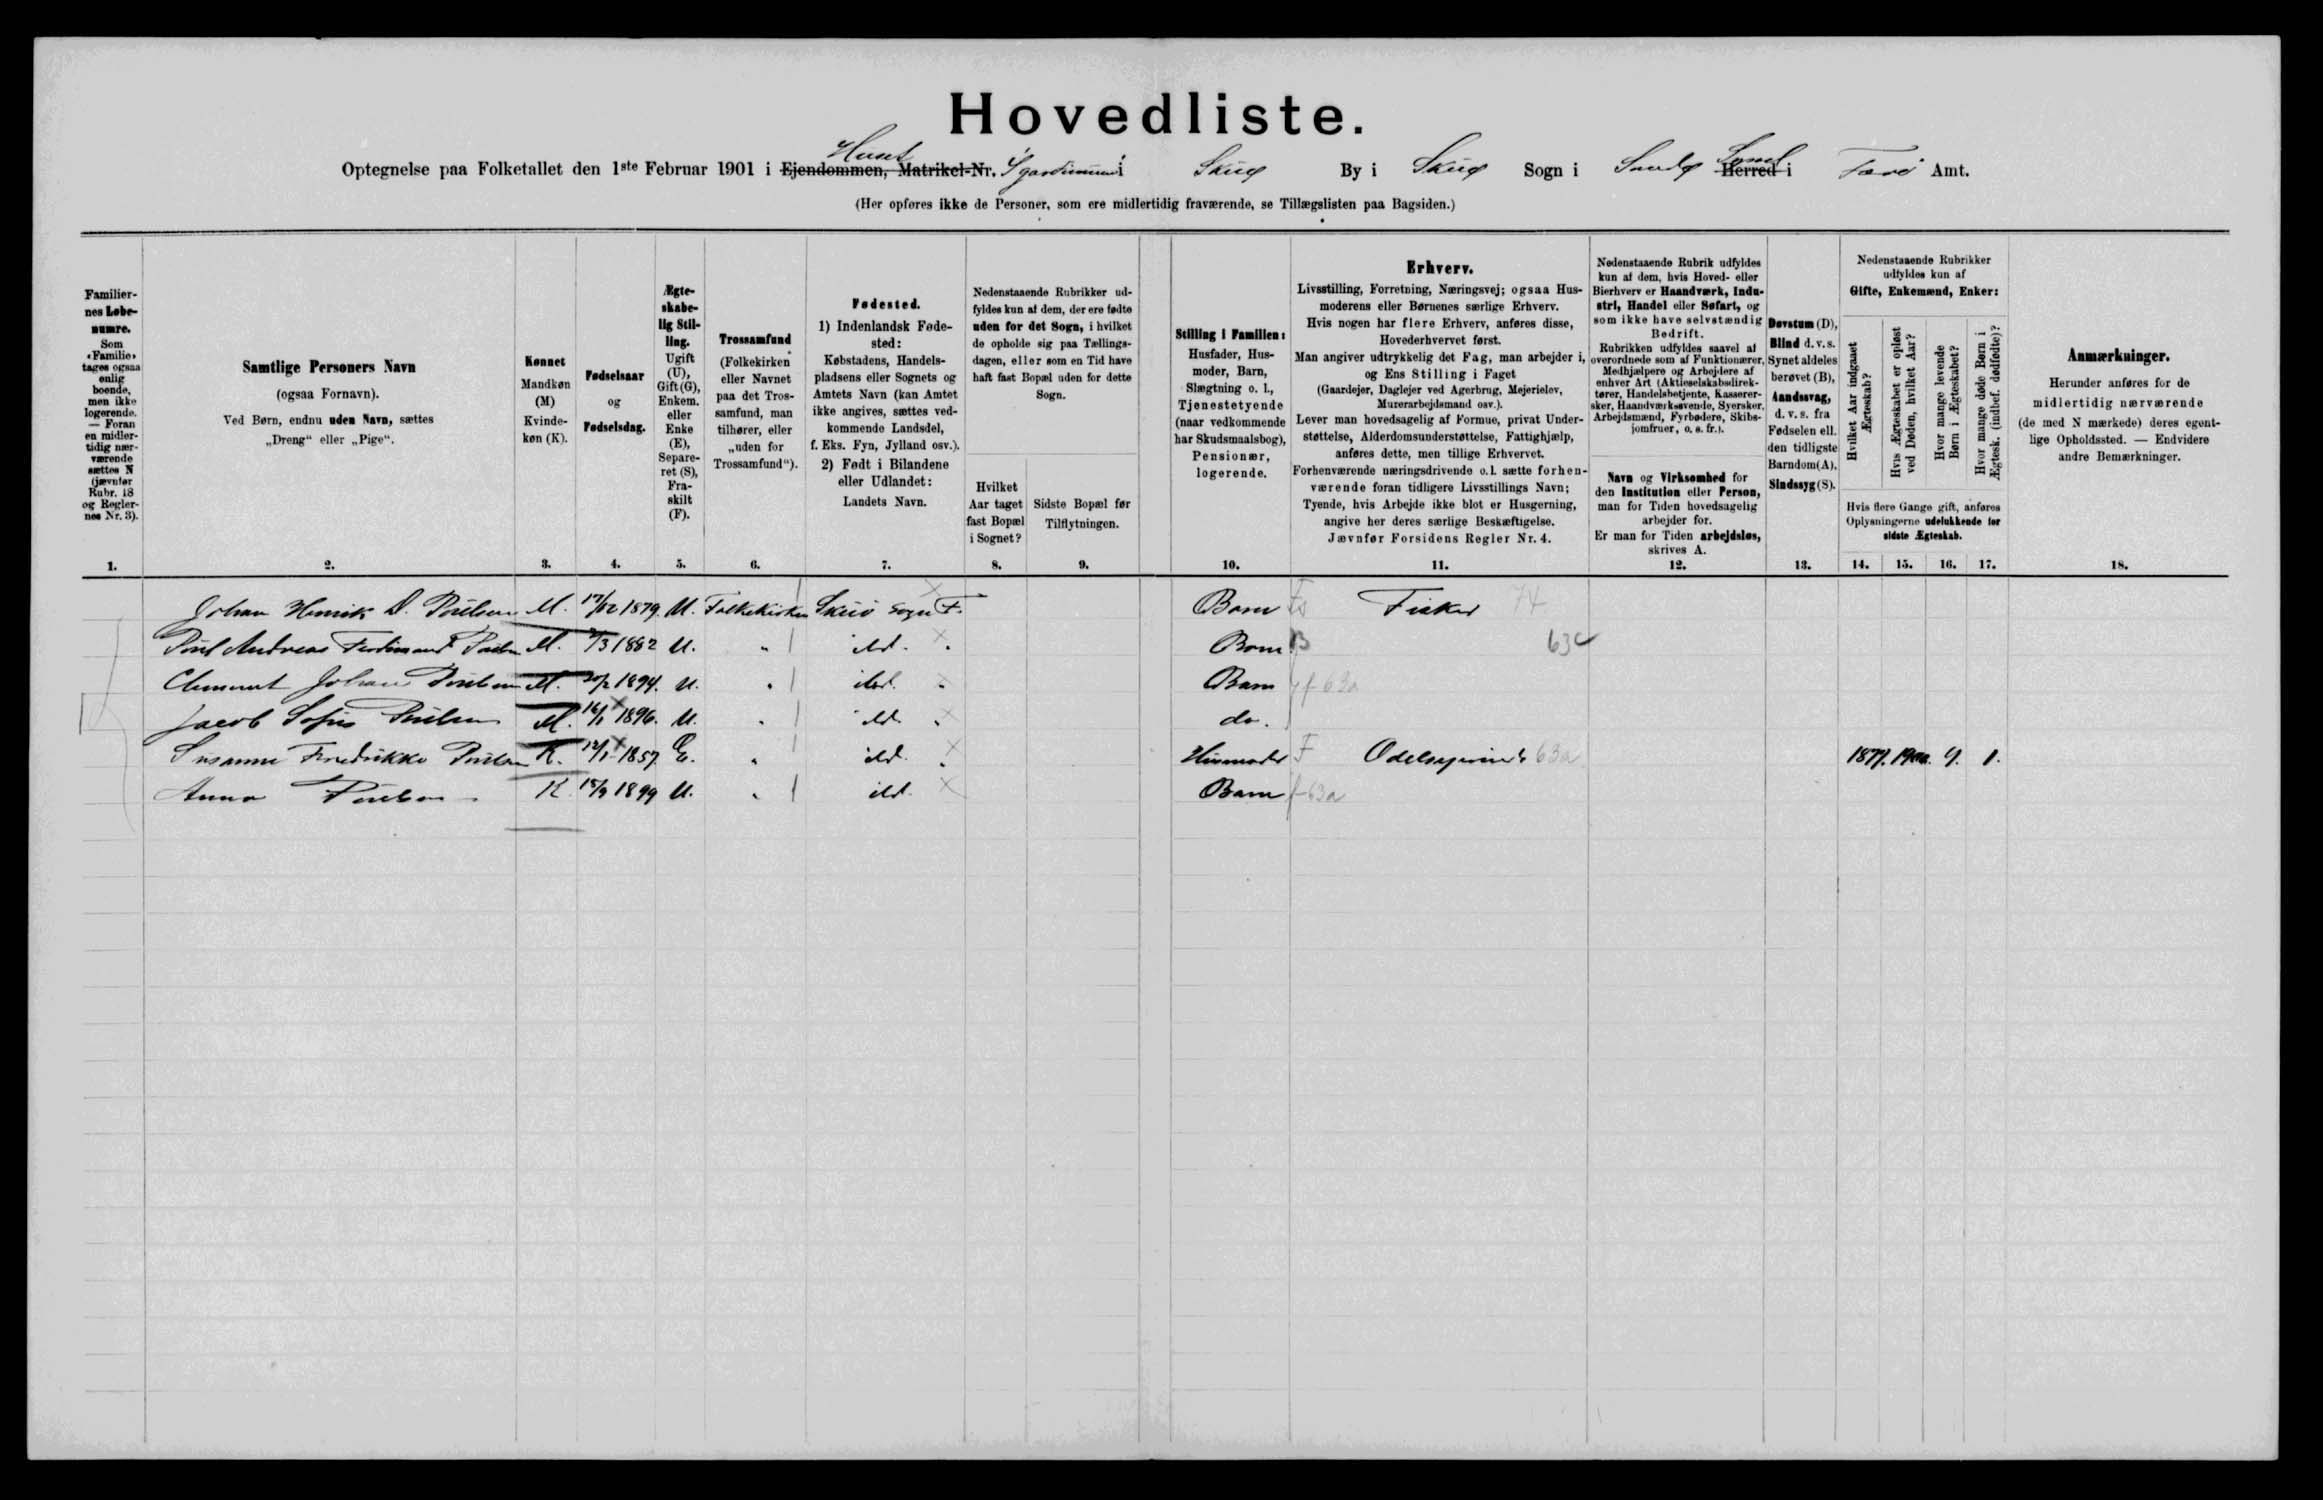 Hovedliste.
Huset Synsel
Optegnelse paa Folketallet den 1ste Februar 1901 i Ejendommen, Matrikel-Nr. i Skuø By i Skuø Sogn i Sandø Herred i Færø Amt.
(Her opføres ikke de Personer, som ere midlertidig fraværende, se Tillægslisten paa Bagsiden.)
Familiernes Løbenumre.
Som «Familie» tages ogsaa enlig boende, men ikke logerende. — Foran en midlertidig nærværende sættes N (jævnfør Rubr. 18 og Reglernes Nr. 3).
Samtlige Personers Navn
(ogsaa Fornavn).
Ved Børn, endnu uden Navn, sættes
„Dreng“ eller „Pige“.
Kønnet
Mandkøn (M)
Kvindekøn (K).
Fødselsaar
og
Fødselsdag.
Ægteskabelig Stilling.
Ugift (U), Gift (G), Enkem. eller Enke (E), Separeret (S), Fraskilt (F).
Trossamfund
(Folkekirken eller Navnet paa det Trossamfund, man tilhører, eller „uden for Trossamfund“).
Fødested.
1) Indenlandsk Fødested:
Købstadens, Handelspladsens eller Sognets og Amtets Navn (kan Amtet ikke angives, sættes vedkommende Landsdel, f. Eks. Fyn, Jylland osv.).
2) Født i Bilandene eller Udlandet:
Landets Navn.
Nedenstaaende Rubrikker udfyldes kun af dem, der ere fødte uden for det Sogn, i hvilket de opholde sig paa Tællingsdagen, eller som en Tid have haft fast Bopæl uden for dette Sogn.
Hvilket Aar taget fast Bopæl i Sognet?
Sidste Bopæl før Tilflytningen.
Stilling i Familien:
Husfader, Husmoder, Barn, Slægtning o. l., Tjenestetyende (naar vedkommende har Skudsmaalsbog), Pensionær, logerende.
Erhverv.
Livsstilling, Forretning, Næringsvej; ogsaa Husmoderens eller Børnenes særlige Erhverv.
Hvis nogen har flere Erhverv, anføres disse, Hovederhvervet først.
Man angiver udtrykkelig det Fag, man arbejder i, og Ens Stilling i Faget
(Gaardejer, Daglejer ved Agerbrug, Mejerielev, Murerarbejdsmand osv.).
Lever man hovedsagelig af Formue, privat Understøttelse, Alderdomsunderstøttelse, Fattighjælp, anføres dette, men tillige Erhvervet.
Forhenværende næringsdrivende o. l. sætte forhenværende foran tidligere Livsstillings Navn;
Tyende, hvis Arbejde ikke blot er Husgerning, angive her deres særlige Beskæftigelse.
Jævnfør Forsidens Regler Nr. 4.
Nedenstaaende Rubrik udfyldes kun af dem, hvis Hoved- eller Bierhverv er Haandværk, Industri, Handel eller Søfart, og som ikke have selvstændig Bedrift.
Rubrikken udfyldes saavel af overordnede som af Funktionærer, Medhjælpere og Arbejdere af enhver Art (Aktieselskabsdirektører, Handelsbetjente, Kasserersker, Haandværkssvende, Syersker, Arbejdsmænd, Fyrbødere, Skibsjomfruer, o. s. fr.).
Navn og Virksomhed for den Institution eller Person, man for Tiden hovedsagelig arbejder for.
Er man for Tiden arbejdsløs, skrives A.
Døvstum (D),
Blind d. v. s. Synet aldeles berøvet (B),
Aandssvag, d. v. s. fra Fødselen ell. den tidligste Barndom (A),
Sindssyg (S).
Nedenstaaende Rubrikker udfyldes kun af
Gifte, Enkemænd, Enker:
Hvilket Aar indgaaet Ægteskab?
Hvis Ægteskabet er opløst ved Døden, hvilket Aar?
Hvor mange levende Børn i Ægteskabet?
Hvor mange døde Børn i Ægtesk. (indbef. dødfødte)?
Hvis flere Gange gift, anføres Oplysningerne udelukkende for sidste Ægteskab.
Anmærkninger.
Herunder anføres for de midlertidig nærværende (de med N mærkede) deres egentlige Opholdssted. — Endvidere andre Bemærkninger.
1. 2. 3. 4. 5. 6. 7. 8. 9. 10. 11. 12. 13. 14. 15. 16. 17. 18.
Johan Henrik D. Poulsen M. 17/12 1879. U. Folkekirken Skuø Sogn F. Barn Fisker 74
Poul Andreas Ferdinand Poulsen M. 2/3 1882 U. " ild. " Barn B 63c
Clement Johan Poulsen M. 20/2 1894. U. " ild. " Barn f-63a
Jacob Sofus Poulsen M. 16/1 1896. U. " ild. " do.
Susanne Fredrikke Poulsen K. 12/1 1857 E. " ild. " Husmoder F 63a 1877. 1900. 9. 1.
Anna Poulsen K. 15/9 1899 U. " ild. Barn f-63a